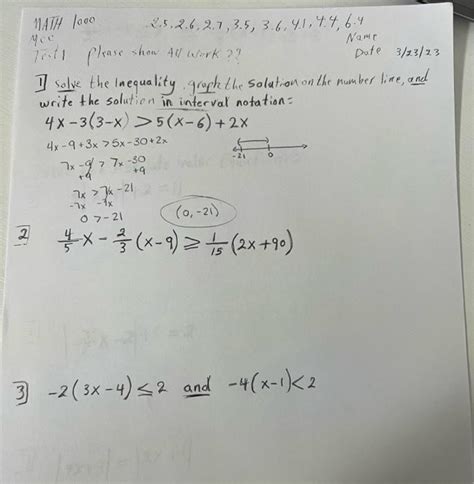 MATH 1000 2.5, 2.6, 2.7, 3.5, 3.6, 4.1, 4.4, 6.4
Name
Test 1 Please show All work ??
Date 3/23/23
1] solve the Inequality, graph the solution on the number line, and
write the solution in interval notation:
4x-3(3-x) > 5(x-6)+2x
4x-9+3x > 5x-30+2x
7x-9 > 7x-30
+9 +9
7x > 7x-21
-7x -7x
0 > -21
-21 0
(0,-21)
2] 4/5 x - 2/3 (x-9) ≥ 1/15 (2x+90)
3] -2(3x-4) ≤ 2 and -4(x-1) < 2